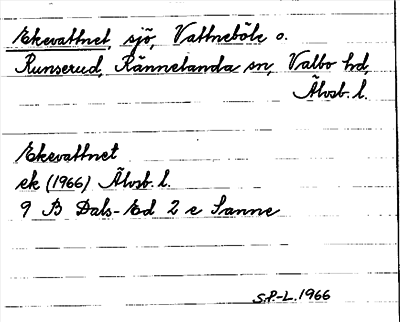 Ekevattnet, sjö, Vattneböle o.
Runserud, Rännelanda sn, Valbo hd,
Älvsb. l.
Ekevattnet
ek (1966) Älvsb. l.
9 B Dals-Ed 2 e Sanne
S.P-L. 1966